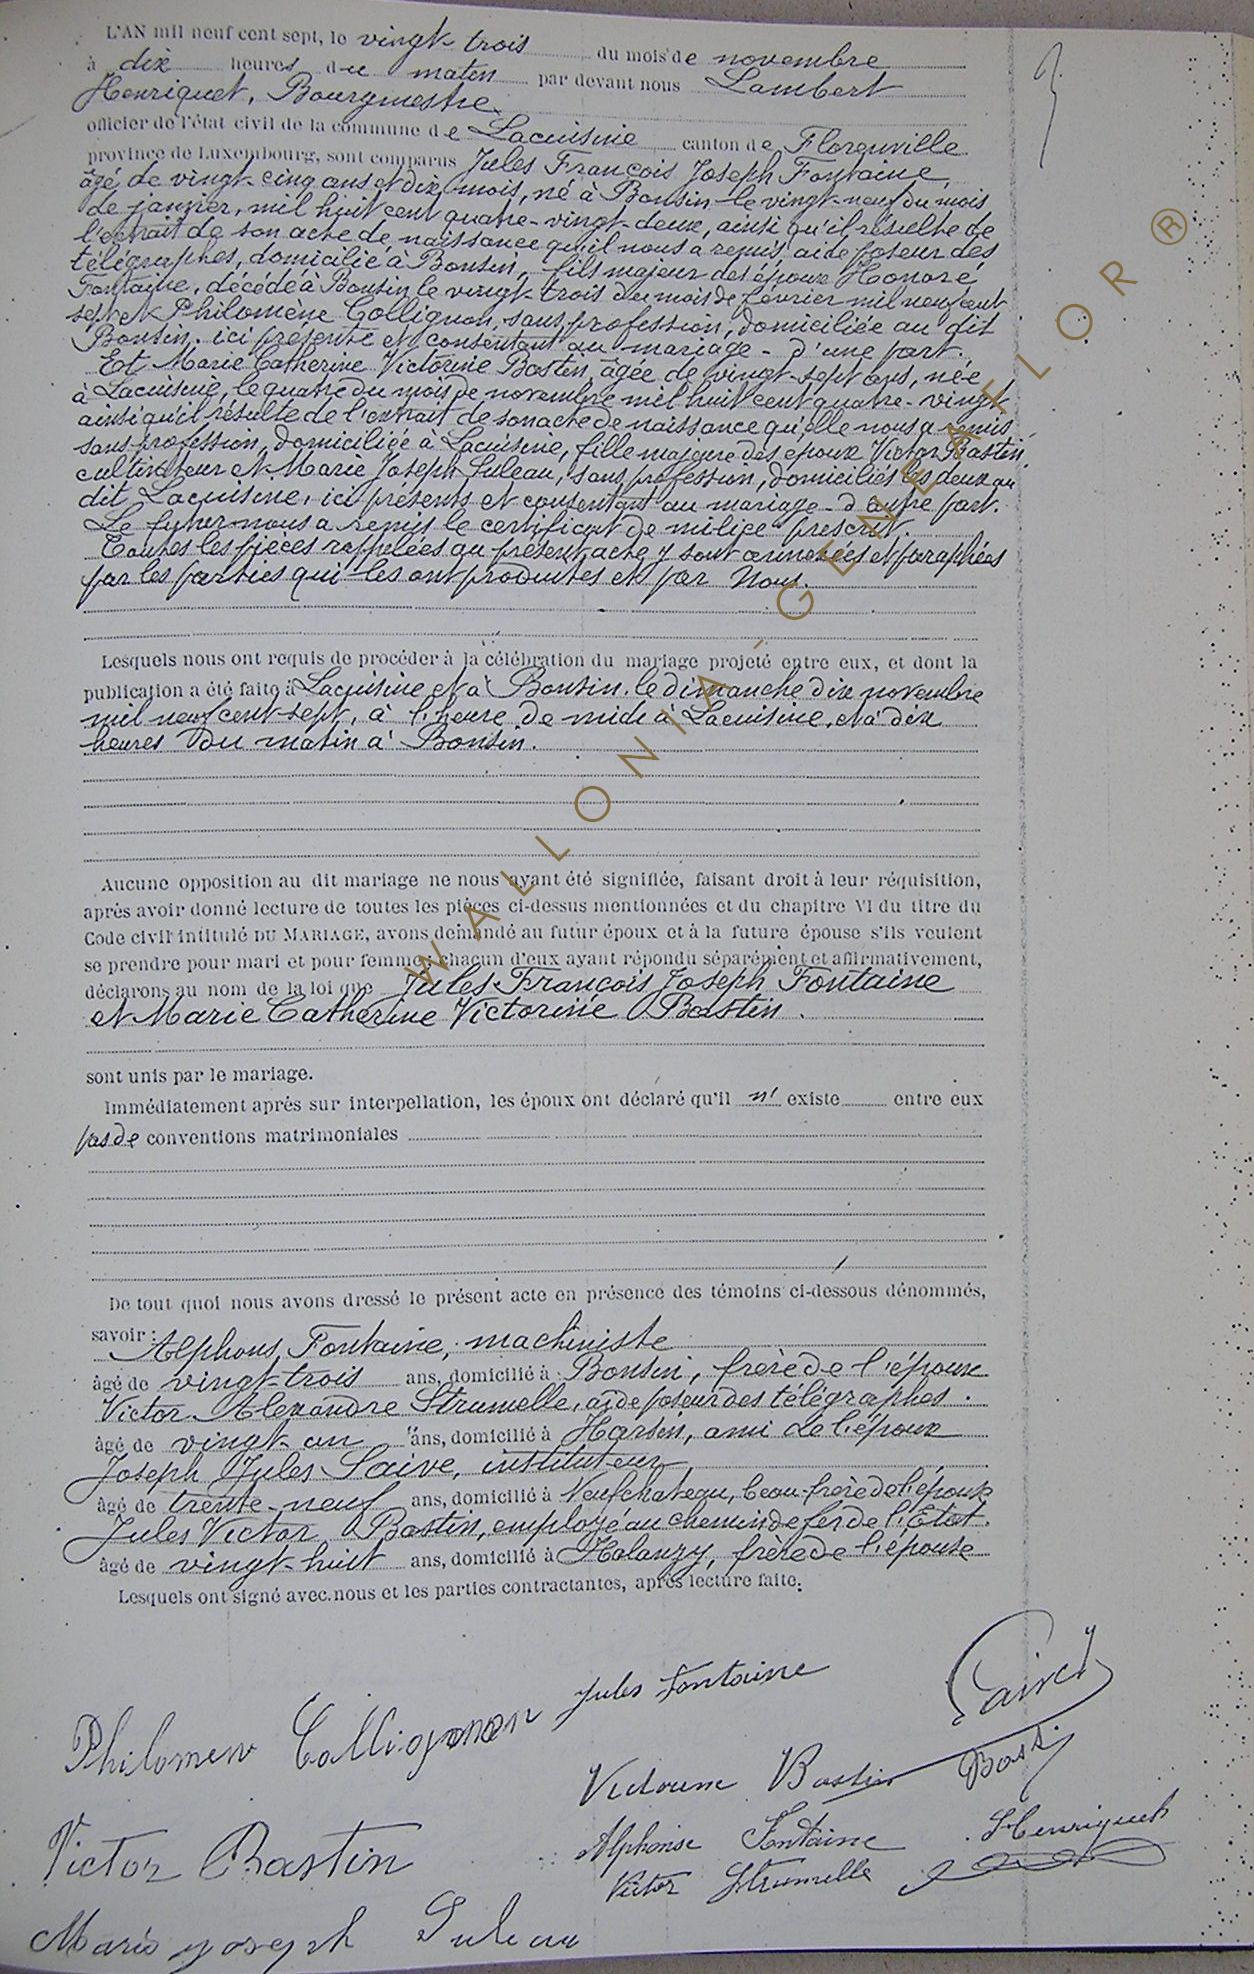 L'AN mil neuf cent sept, le vingt-trois du mois de novembre
à dix heures du matin par devant nous Lambert
Henriquet, Bourgmestre
officier de l'état civil de la commune de Lacuisine canton de Florenville
province de Luxembourg, sont comparus Jules François Joseph Fontaine,
âgé de vingt-cinq ans et dix mois, né à Bonsin le vingt-neuf du mois
de janvier, mil huit cent quatre-vingt-deux, ainsi qu'il résulte de
l'extrait de son acte de naissance qu'il nous a remis, aide poseur des
télégraphes, domicilié à Bonsin, fils majeur des époux Honoré
Fontaine, décédé à Bonsin le vingt-trois du mois de février mil neuf cent
sept et Philomène Collignon, sans profession, domiciliée au dit
Bonsin, ici présente et consentant au mariage - d'une part.
Et Marie Catherine Victorine Bastin, âgée de vingt-sept ans, née
à Lacuisine, le quatre du mois de novembre mil huit cent quatre-vingt
ainsi qu'il résulte de l'extrait de son acte de naissance qu'elle nous a remis
sans profession, domiciliée à Lacuisine, fille majeure des époux Victor Bastin
cultivateur et Marie Joseph Suleau, sans profession, domiciliés les deux au
dit Lacuisine, ici présents et consentant au mariage - d'autre part.
Le futur nous a remis le certificat de milice prescrit.
Toutes les pièces rappelées au présent acte y sont annexées et paraphées
par les parties qui les ont produites et par Nous.
Lesquels nous ont requis de procéder à la célébration du mariage projeté entre eux, et dont la
publication a été faite à Lacuisine et à Bonsin, le dimanche dix novembre
mil neuf cent sept, à l'heure de midi à Lacuisine, et à dix
heures du matin à Bonsin.
Aucune opposition au dit mariage ne nous ayant été signifiée, faisant droit à leur réquisition,
après avoir donné lecture de toutes les pièces ci-dessus mentionnées et du chapitre VI du titre du
Code civil intitulé DU MARIAGE, avons demandé au futur époux et à la future épouse s'ils veulent
se prendre pour mari et pour femme; chacun d'eux ayant répondu séparément et affirmativement,
déclarons au nom de la loi que Jules François Joseph Fontaine
et Marie Catherine Victorine Bastin.
sont unis par le mariage.
Immédiatement après sur interpellation, les époux ont déclaré qu'il n' existe entre eux
pas de conventions matrimoniales
De tout quoi nous avons dressé le présent acte en présence des témoins ci-dessous dénommés,
savoir: Alphons Fontaine, machiniste
âgé de vingt-trois ans, domicilié à Bonsin, frère de l'époux
Victor Alexandre Strumelle, aide poseur des télégraphes.
âgé de vingt-un ans, domicilié à Harsin, ami de l'époux
Joseph Jules Saive, instituteur,
âgé de trente-neuf ans, domicilié à Neufchateau, beau-frère de l'épouse
Jules Victor Bastin, employé au chemin de fer de l'Etat.
âgé de vingt-huit ans, domicilié à Halanzy, frère de l'épouse
Lesquels ont signé avec nous et les parties contractantes, après lecture faite.
Jules Fontaine
Philomen Collignon
Victorine Bastin
Alphonse Fontaine
L. Henriquet
Victor Bastin
Victor Strumelle
Marie Joseph Suleau
WALLONIA-GENEAFLOR ®